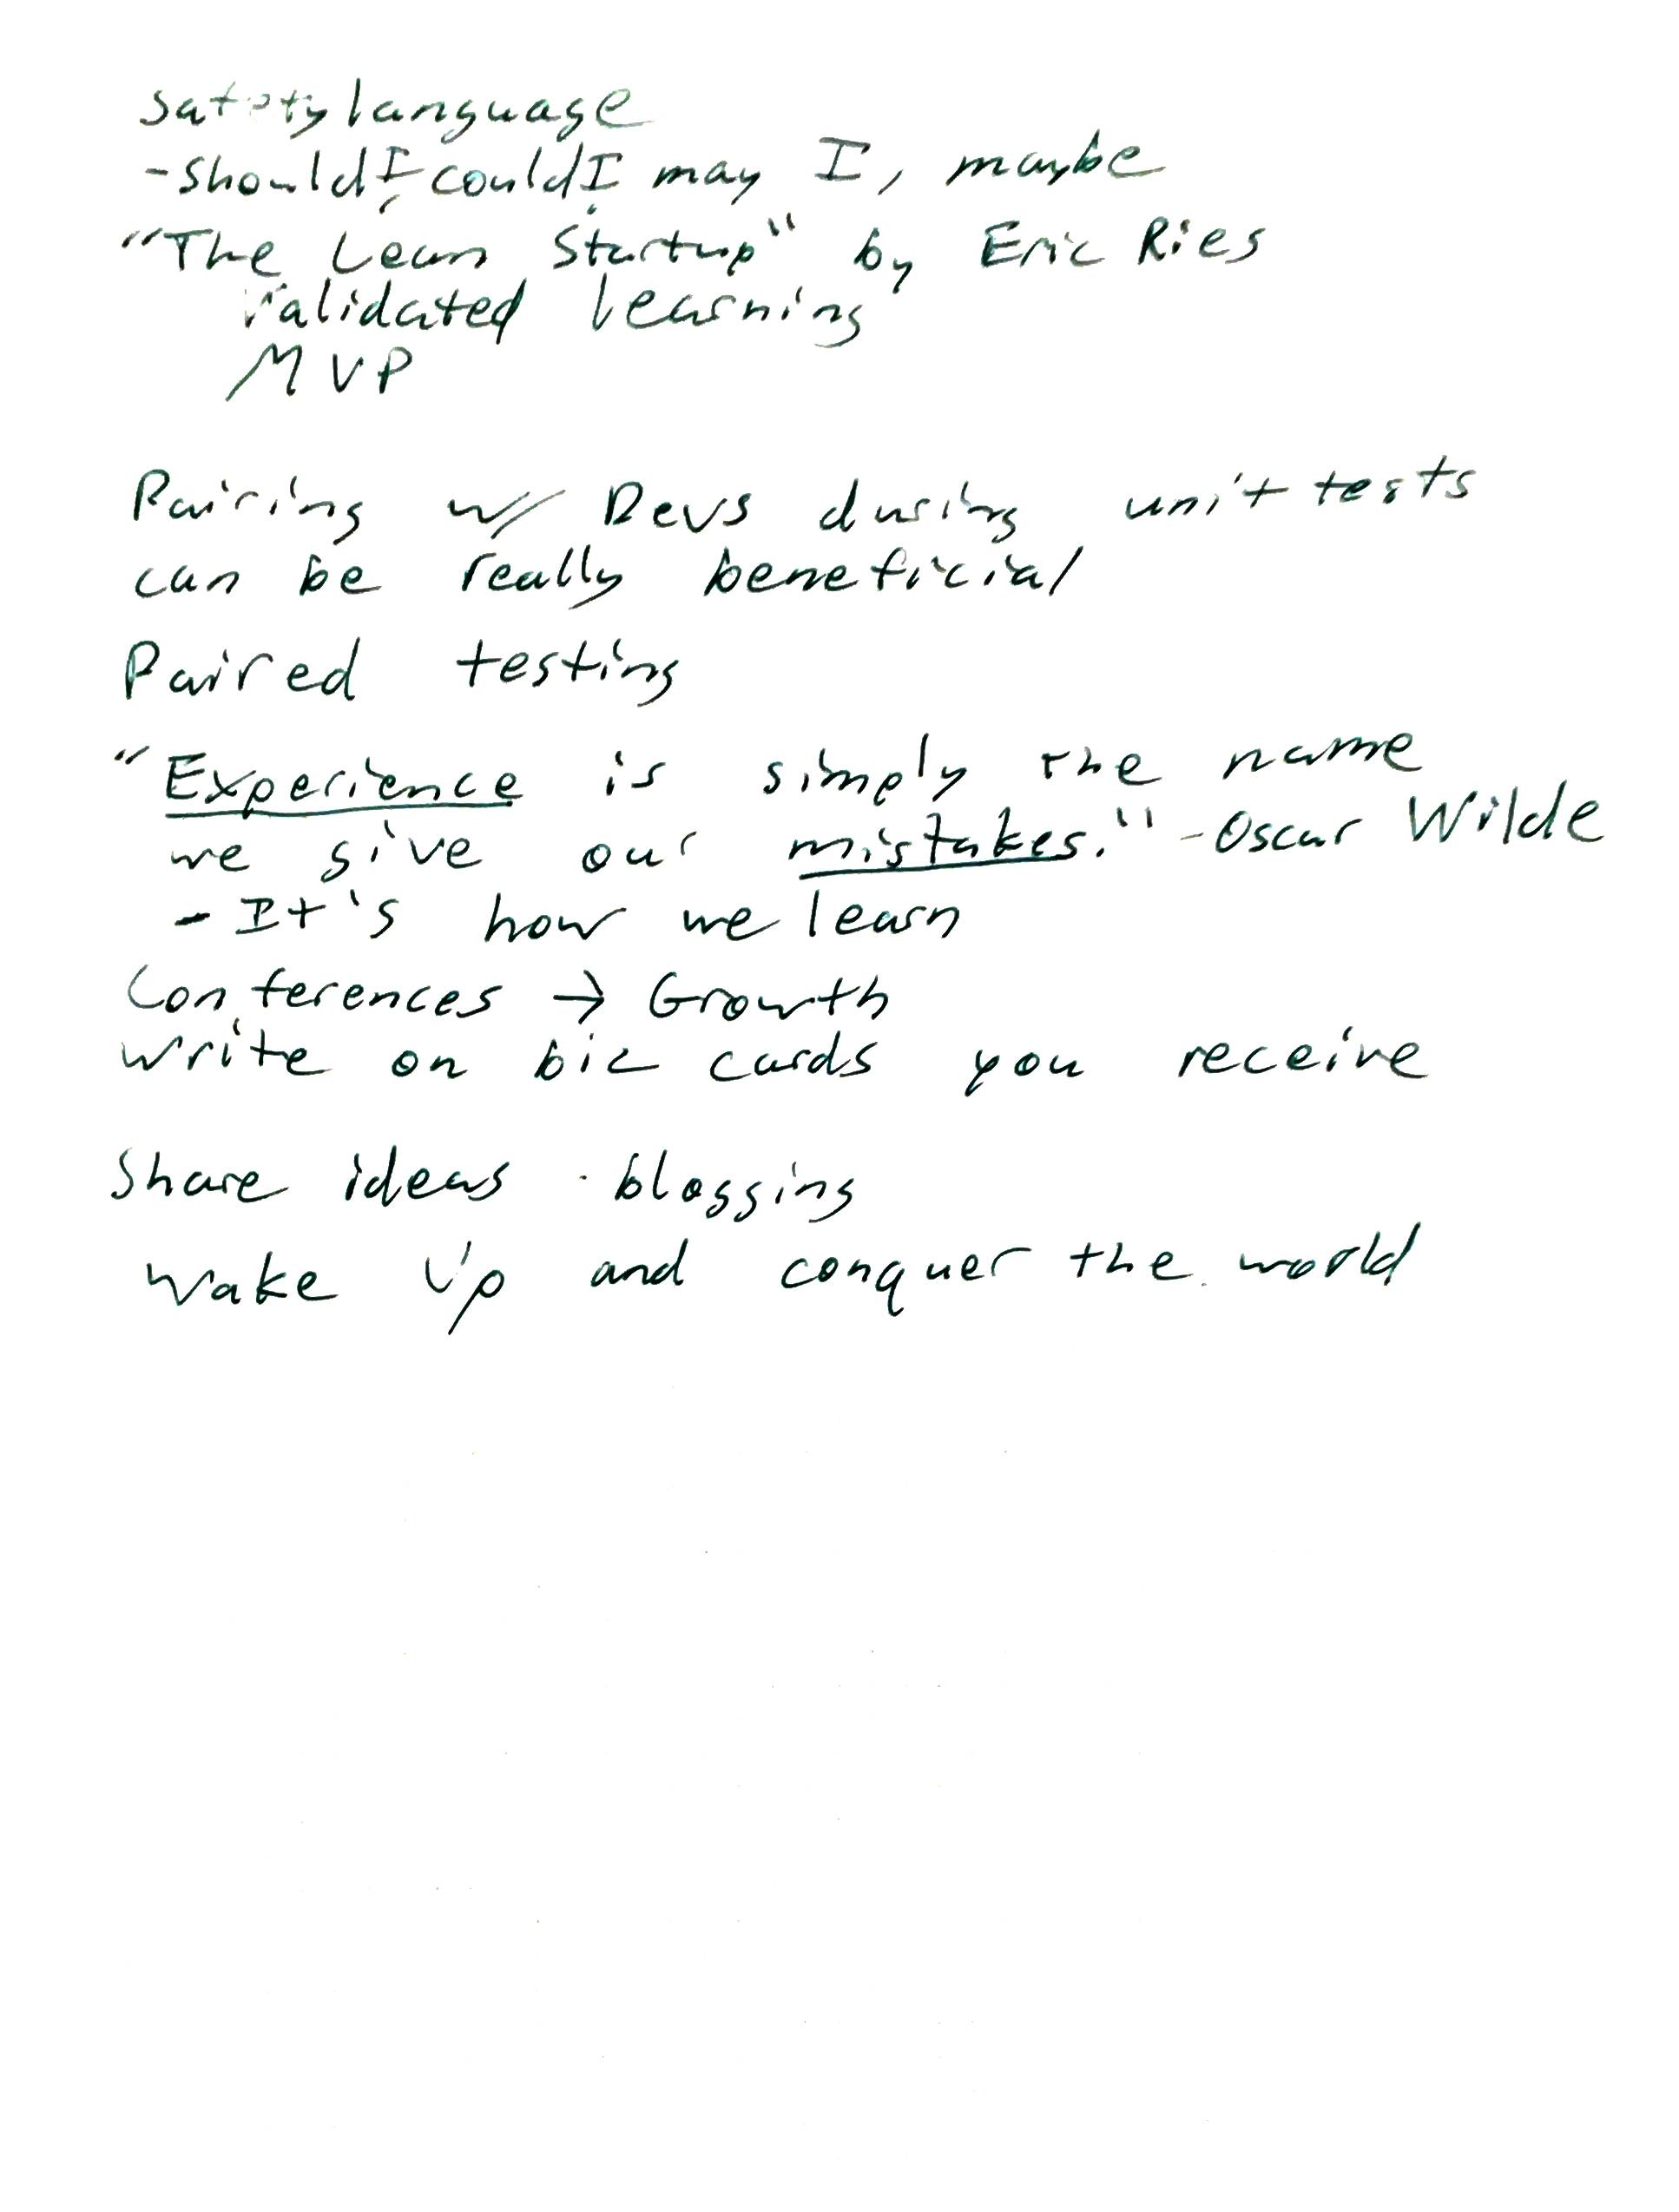 Safety language
- Should I, could I, may I, maybe
"The Lean Startup" by Eric Ries
Validated learning
MVP
Pairing w/ Devs during unit tests
can be really beneficial
Paired testing
"Experience is simply the name
we give our mistakes." - Oscar Wilde
- It's how we learn
Conferences → Growth
Write on biz cards you receive
Share ideas - blogging
Wake Up and conquer the world